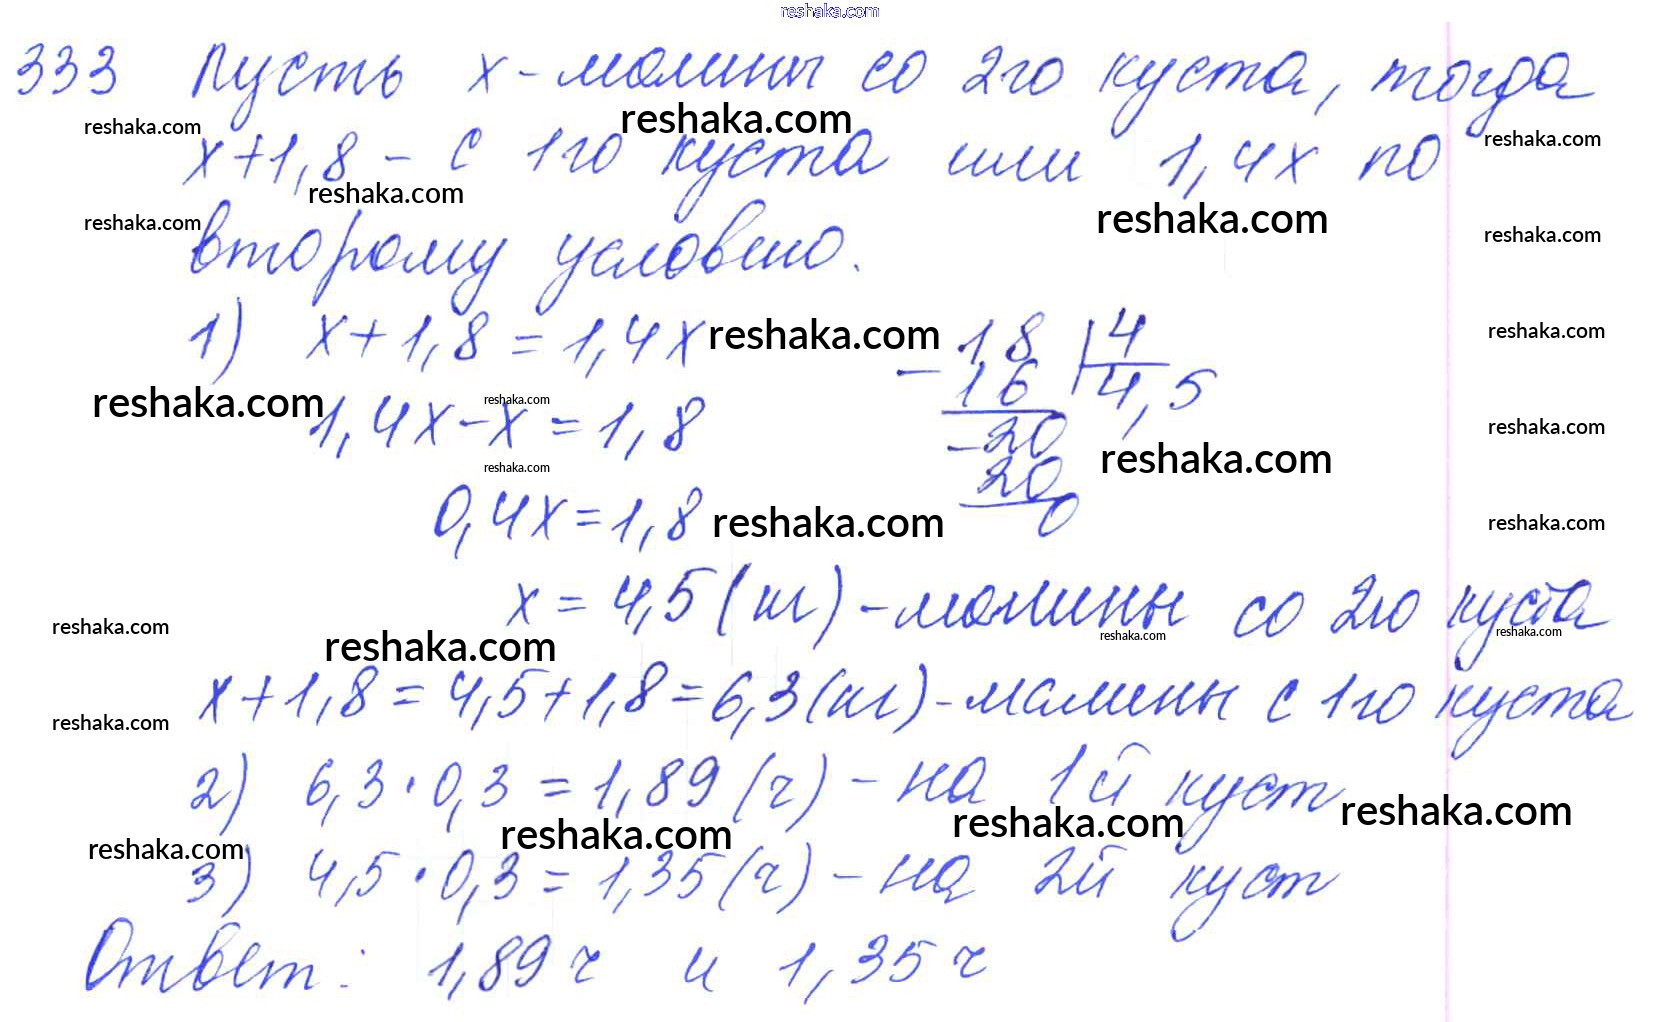 reshaka.com
333 Пусть x - малины со 2го куста, тогда
reshaka.com reshaka.com reshaka.com
x+1,8 - с 1го куста или 1,4x по
reshaka.com
reshaka.com reshaka.com reshaka.com
второму условию.
1) x+1,8=1,4x reshaka.com -18 |4 reshaka.com
16 4,5
reshaka.com 1,4x-x=1,8 reshaka.com
-20 reshaka.com
reshaka.com reshaka.com
20
0,4x=1,8 reshaka.com 0 reshaka.com
x=4,5(кг)-малины со 2го куста
reshaka.com reshaka.com reshaka.com reshaka.com
x+1,8=4,5+1,8=6,3(кг)-малины с 1го куста
reshaka.com
2) 6,3·0,3=1,89(ч)-на 1й куст
reshaka.com reshaka.com reshaka.com reshaka.com
3) 4,5·0,3=1,35(ч)-на 2й куст
Ответ: 1,89 ч и 1,35 ч